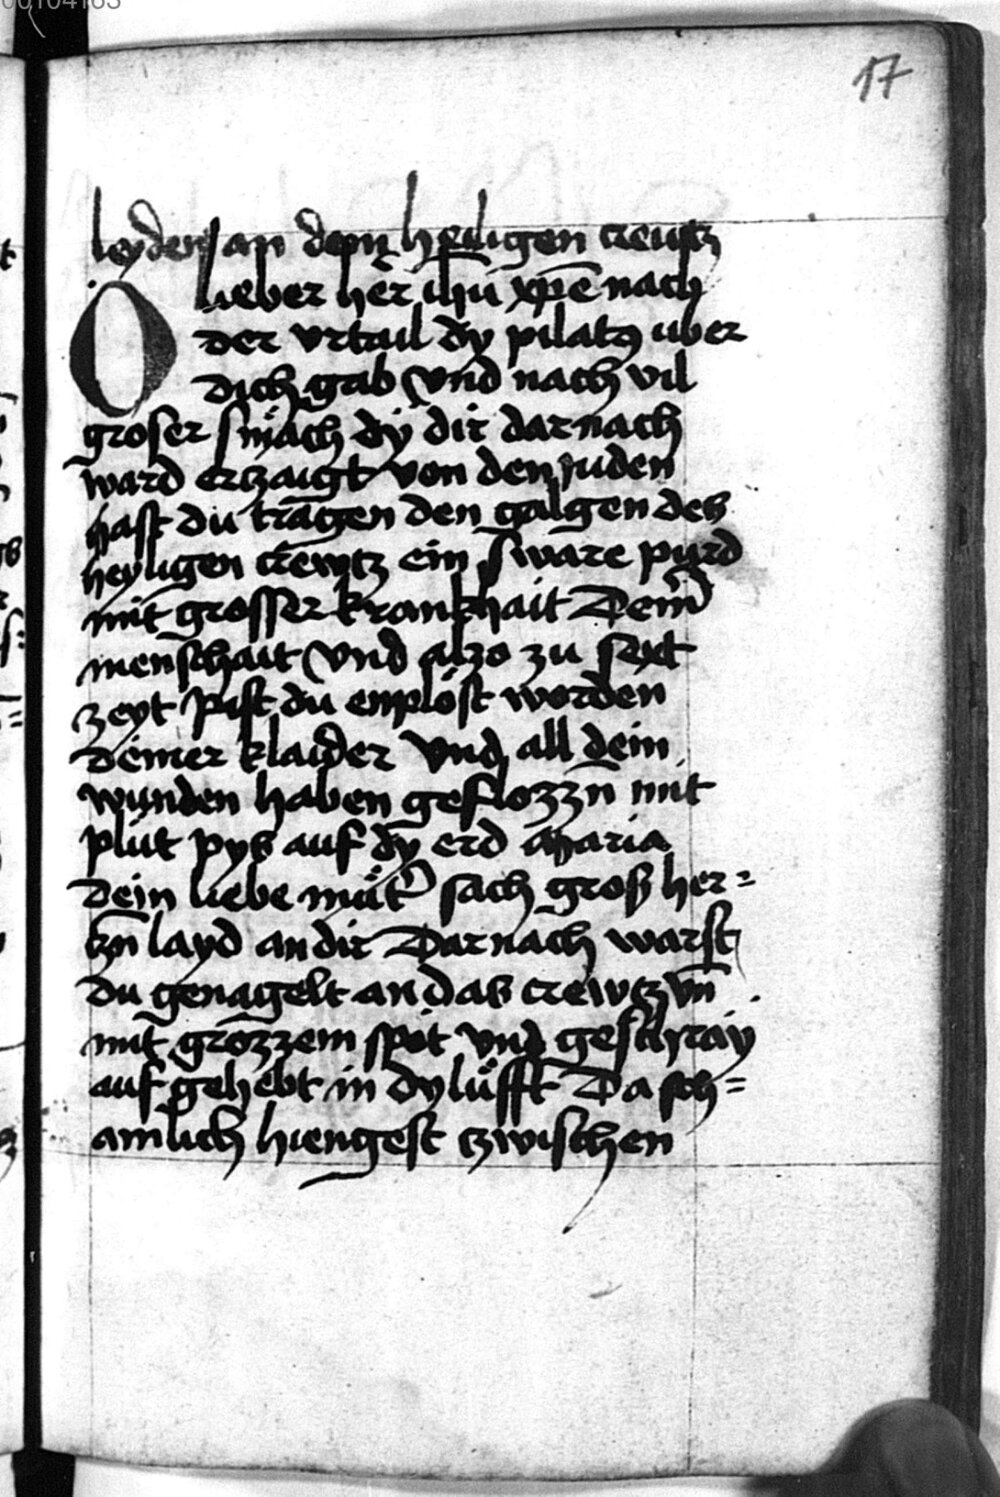 00104163
17
leyden an dem heiligen crewtz
O lieber her ihū xpē nach
der vrtail dy pilatꝰ uber
dich gab vnd nach vil
groser smach dy dir darnach
ward erczaigt von den juden
hast du tragen den galgen des
heyligen crewtz ein sware purd
mit grosser krankhait Deinͬ
menschait vnd alzo zu sext
zeyt pist du enplöst worden
deiner klaider vnd all dein
wunden haben geflozzn̄ mit
plut pys auf dy erd Maria
Dein liebe mütͬ sach gross her=
tzn̄ layd an dir Darnach warst
du genagelt an das crewtz vn̄
mit grozzem spot vnd geschray
auf gehebt in dy lüfft Da sch=
amlich hiengest tzwischen